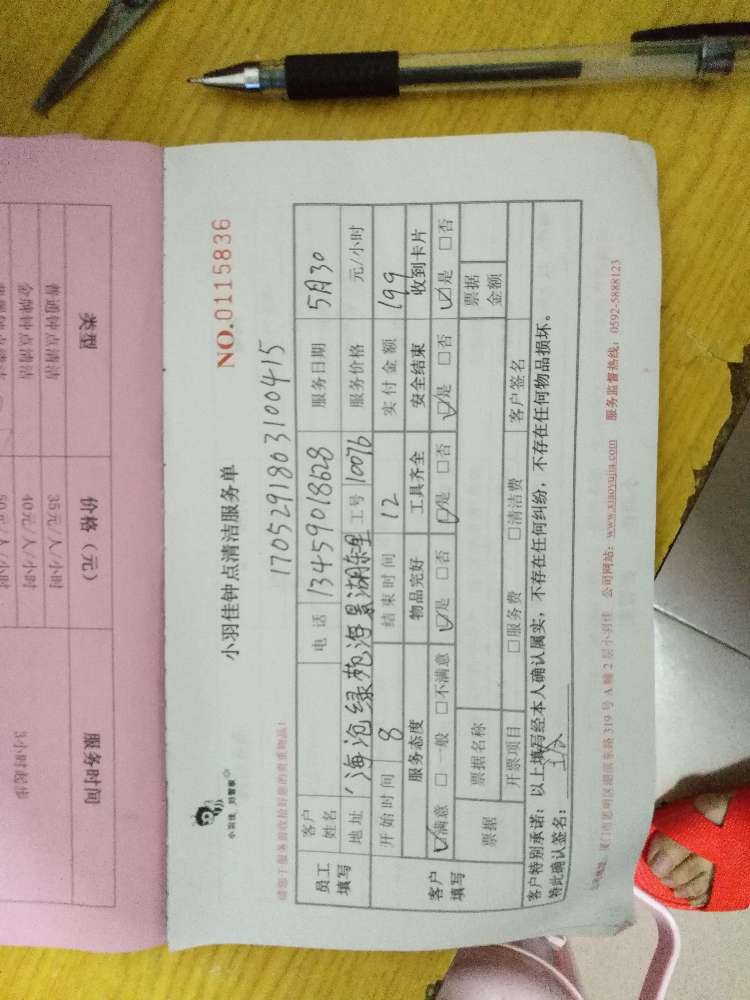 小羽佳，好管家
小羽佳钟点清洁服务单
NO.0115836
1705291803100415
请您于服务前收拾好您的贵重物品！
员工填写
客户姓名
电话 13459018628
服务日期 5月30
地址
工号 10076
服务价格 元/小时
开始时间 8
结束时间 12
实付金额 199
客户填写
服务态度 物品完好 工具齐全 安全结束 收到卡片
☑满意 □一般 □不满意 ☑是 □否 ☑是 □否 ☑是 □否 ☑是 □否
票据 票据名称 票据金额
开票项目 □服务费 □清洁费 客户签名
客户特别承诺：以上填写经本人确认属实，不存在任何纠纷，不存在任何物品损坏。
特此确认签名：
厦门市思明区湖滨东路 319 号 A 幢 2 层小羽佳 公司网站：www.xiaoyujia.com 服务监督热线：0592-5888123
类型 价格（元） 服务时间
普通钟点清洁 35元/人/小时
金牌钟点清洁 40元/人/小时
50元/人/小时
3小时起步